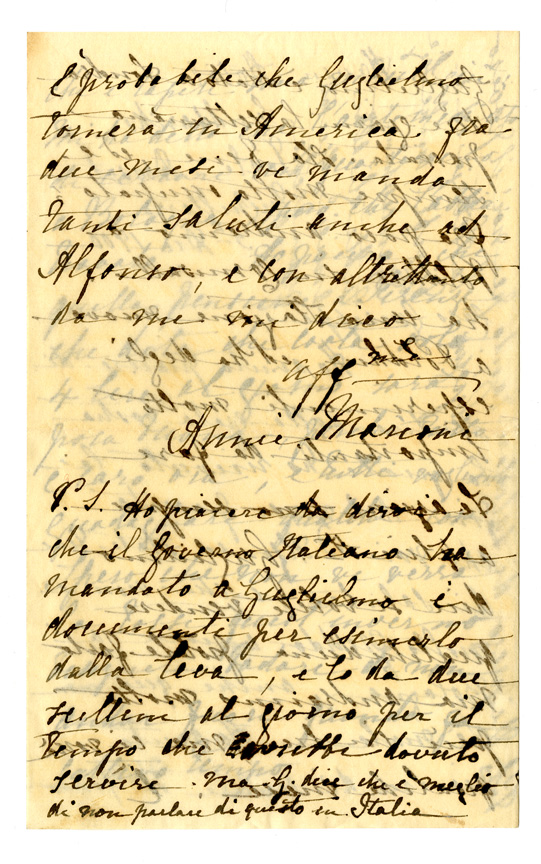 È probabile che Guglielmo
tornerà in America fra
due mesi ve manda
tanti saluti anche ad
Alfonso, e con altrettanto
da me mi dico
aff ma
Annie Marconi
P. S. Ho piacere di dirvi
che il Governo Italiano ha
mandato a Guglielmo i
documenti per esimerlo
dalla leva, e lo da due
scellini al giorno per il
tempo che dovuto
servire. Ma G. dice che è meglio
di non parlare di questo in Italia